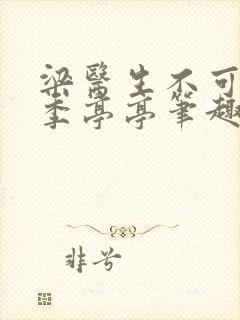 梁醫生不可
季亭亭筆趣
非兮